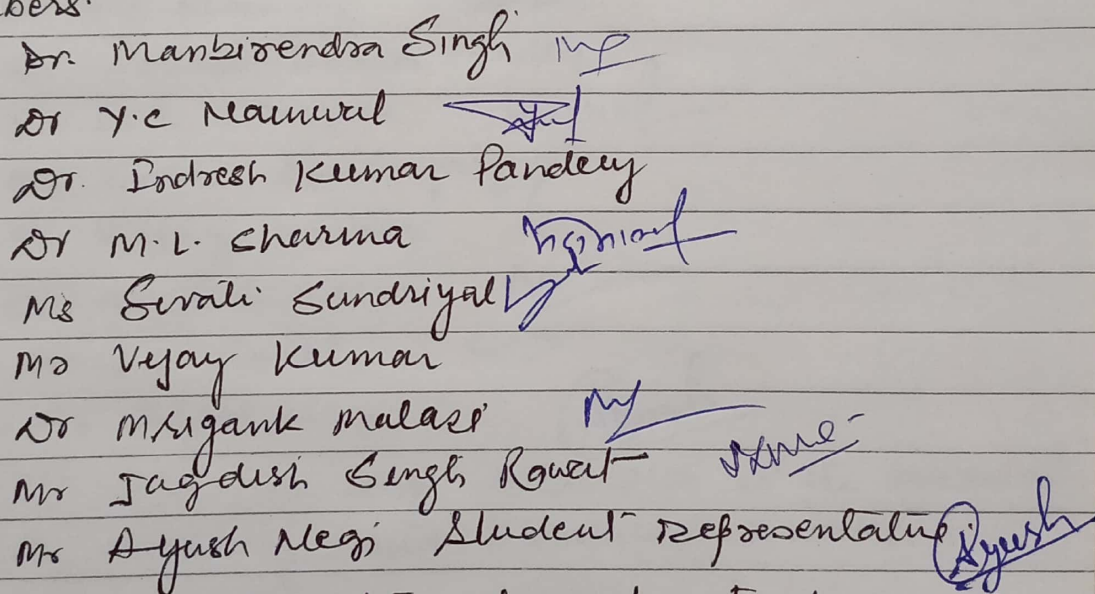 bers:
Dr. Manbirendra Singh
Dr Y.C Nainwal
Dr. Indresh Kumar Pandey
Dr M.L. Sharma
Ms Surati Sundriyal
Mr Vijay Kumar
Dr Mrigank Malasi
Mr Jagdish Singh Rawat
Mr Ayush Negi Student Representative Ayush